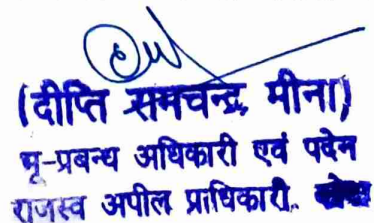 (दीप्ति रामचन्द्र मीना)
भू-प्रबन्ध अधिकारी एवं पदेन
राजस्व अपील प्राधिकारी..